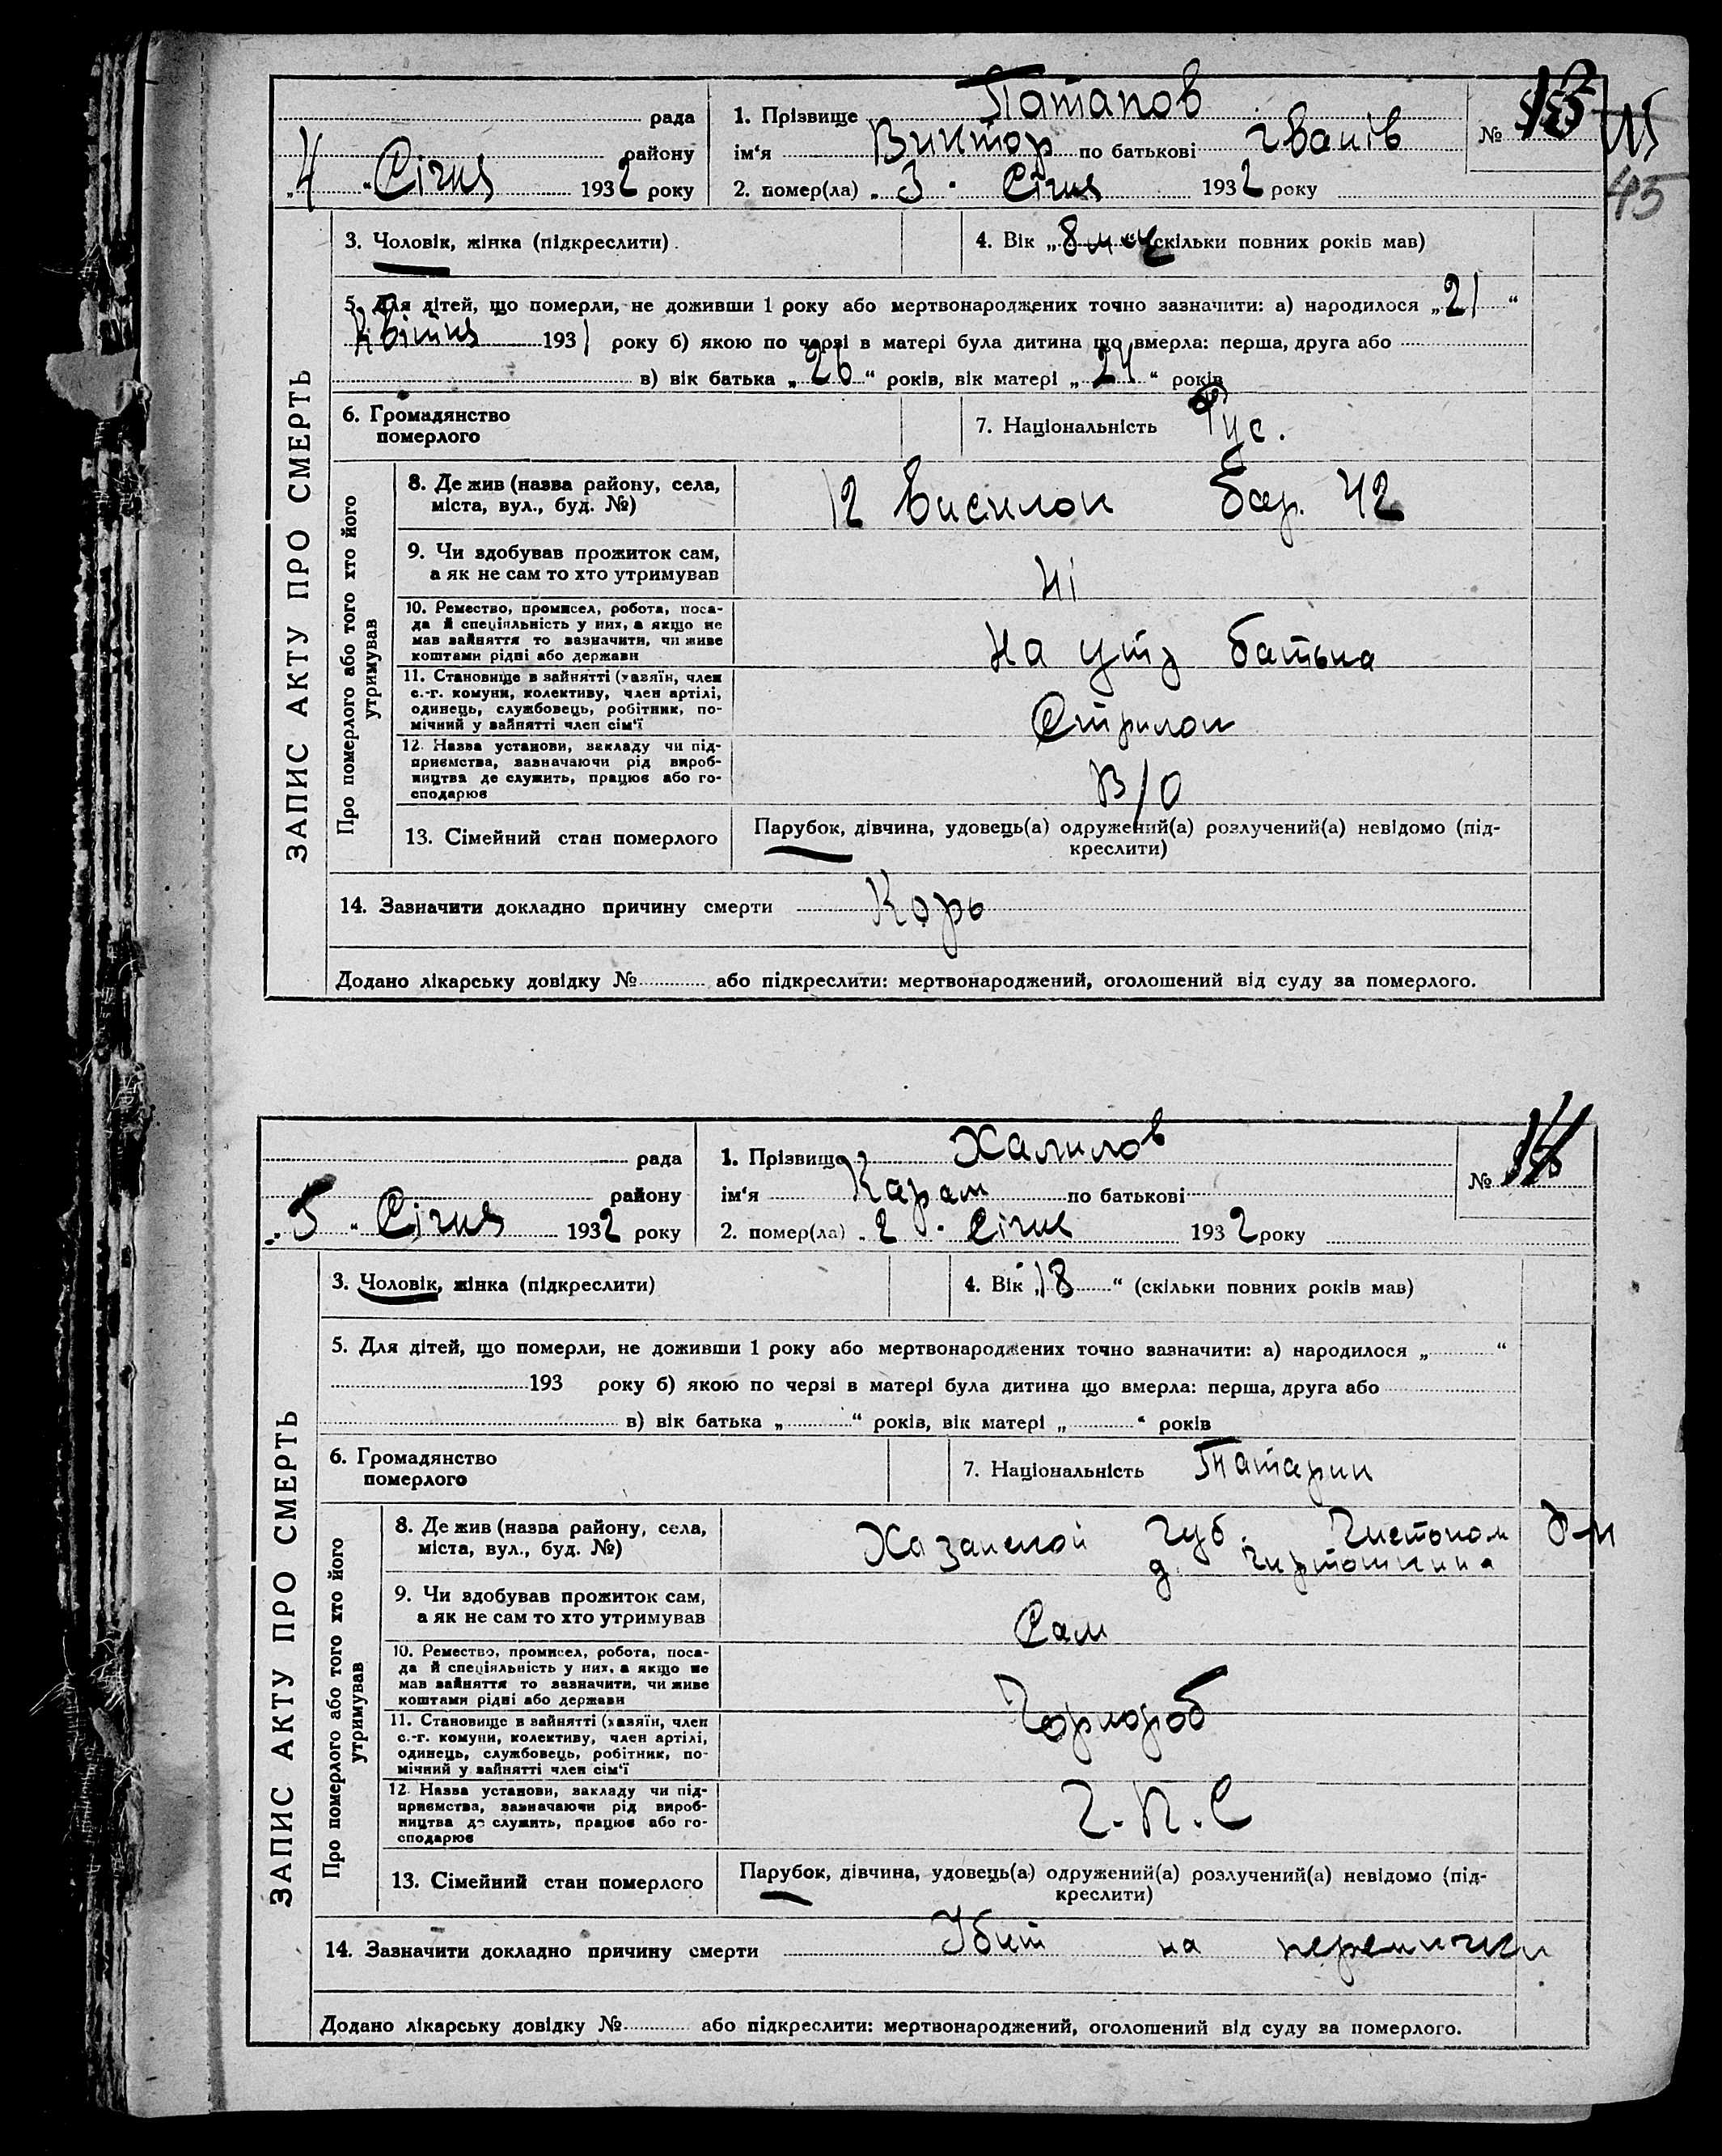 45
ЗАПИС АКТУ ПРО СМЕРТЬ
рада
району
„4“ Січня 1932 року
1. Прізвище Патапов
ім‘я Виктор по батькові Іванів
№ 13
2. помер(ла) „3“ Січня 1932 року
3. Чоловік, жінка (підкреслити)
4. Вік „8 м-ц“ (скільки повних років мав)
5. Для дітей, що померли, не доживши 1 року або мертвонароджених точно зазначити: а) народилося „21“
Квітня 1931 року б) якою по черзі в матері була дитина що вмерла: перша, друга або
в) вік батька „26“ років, вік матері „24“ років
6. Громадянство
померлого
7. Національність Рус.
Про померлого або того хто його
утримував
8. Де жив (назва району, села,
міста, вул., буд. №)
12 Висилок бар. 42
9. Чи здобував прожиток сам,
а як не сам то хто утримував
Ні
10. Ремество, промисел, робота, поса-
да й спеціяльність у них, а якщо не
мав зайняття то зазначити, чи живе
коштами рідні або держави
На утр батька
11. Становище в зайнятті (хазяїн, член
с.-г. комуни, колективу, член артілі,
одинець, службовець, робітник, по-
мічний у зайнятті член сім‘ї
Стрилок
12. Назва установи, закладу чи під-
приємства, зазначаючи рід вироб-
ництва де служить, працює або го-
сподарює
В/О
13. Сімейний стан померлого
Парубок, дівчина, удовець(а) одружений(а) розлучений(а) невідомо (під-
креслити)
14. Зазначити докладно причину смерти Корь
Додано лікарську довідку № або підкреслити: мертвонароджений, оголошений від суду за померлого.
ЗАПИС АКТУ ПРО СМЕРТЬ
рада
району
„5“ Січня 1932 року
1. Прізвище Халилов
ім‘я Карам по батькові
№ 14
2. помер(ла) „2“ Січня 1932 року
3. Чоловік, жінка (підкреслити)
4. Вік „18“ (скільки повних років мав)
5. Для дітей, що померли, не доживши 1 року або мертвонароджених точно зазначити: а) народилося „ “
193 року б) якою по черзі в матері була дитина що вмерла: перша, друга або
в) вік батька „ “ років, вік матері „ “ років
6. Громадянство
померлого
7. Національність Татарин
Про померлого або того хто його
утримував
8. Де жив (назва району, села,
міста, вул., буд. №)
Казанской губ. Чистопом р-н
д.
9. Чи здобував прожиток сам,
а як не сам то хто утримував
Сам
10. Ремество, промисел, робота, поса-
да й спеціяльність у них, а якщо не
мав зайняття то зазначити, чи живе
коштами рідні або держави
Чорнороб
11. Становище в зайнятті (хазяїн, член
с.-г. комуни, колективу, член артілі,
одинець, службовець, робітник, по-
мічний у зайнятті член сім‘ї
12. Назва установи, закладу чи під-
приємства, зазначаючи рід вироб-
ництва де служить, працює або го-
сподарює
13. Сімейний стан померлого
Парубок, дівчина, удовець(а) одружений(а) розлучений(а) невідомо (під-
креслити)
14. Зазначити докладно причину смерти Убит на перемички
Додано лікарську довідку № або підкреслити: мертвонароджений, оголошений від суду за померлого.